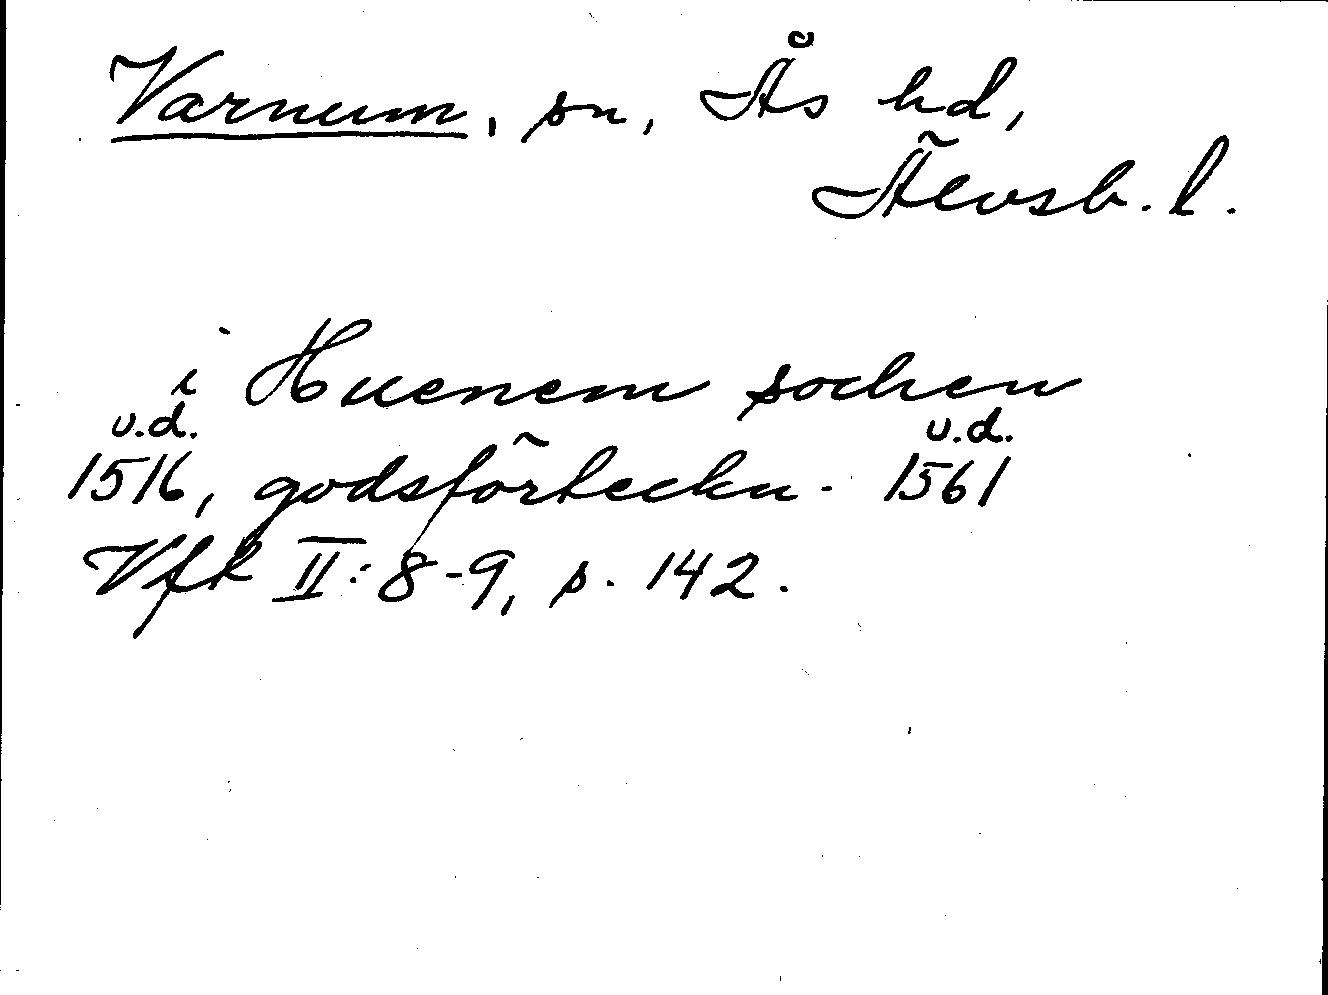 Varnum, sn, Ås hd,
Älvsb. l.
i Huenem sochen
u.d. u.d.
1516, godsförteckn. 1561
Vfk II: 8-9, s. 142.